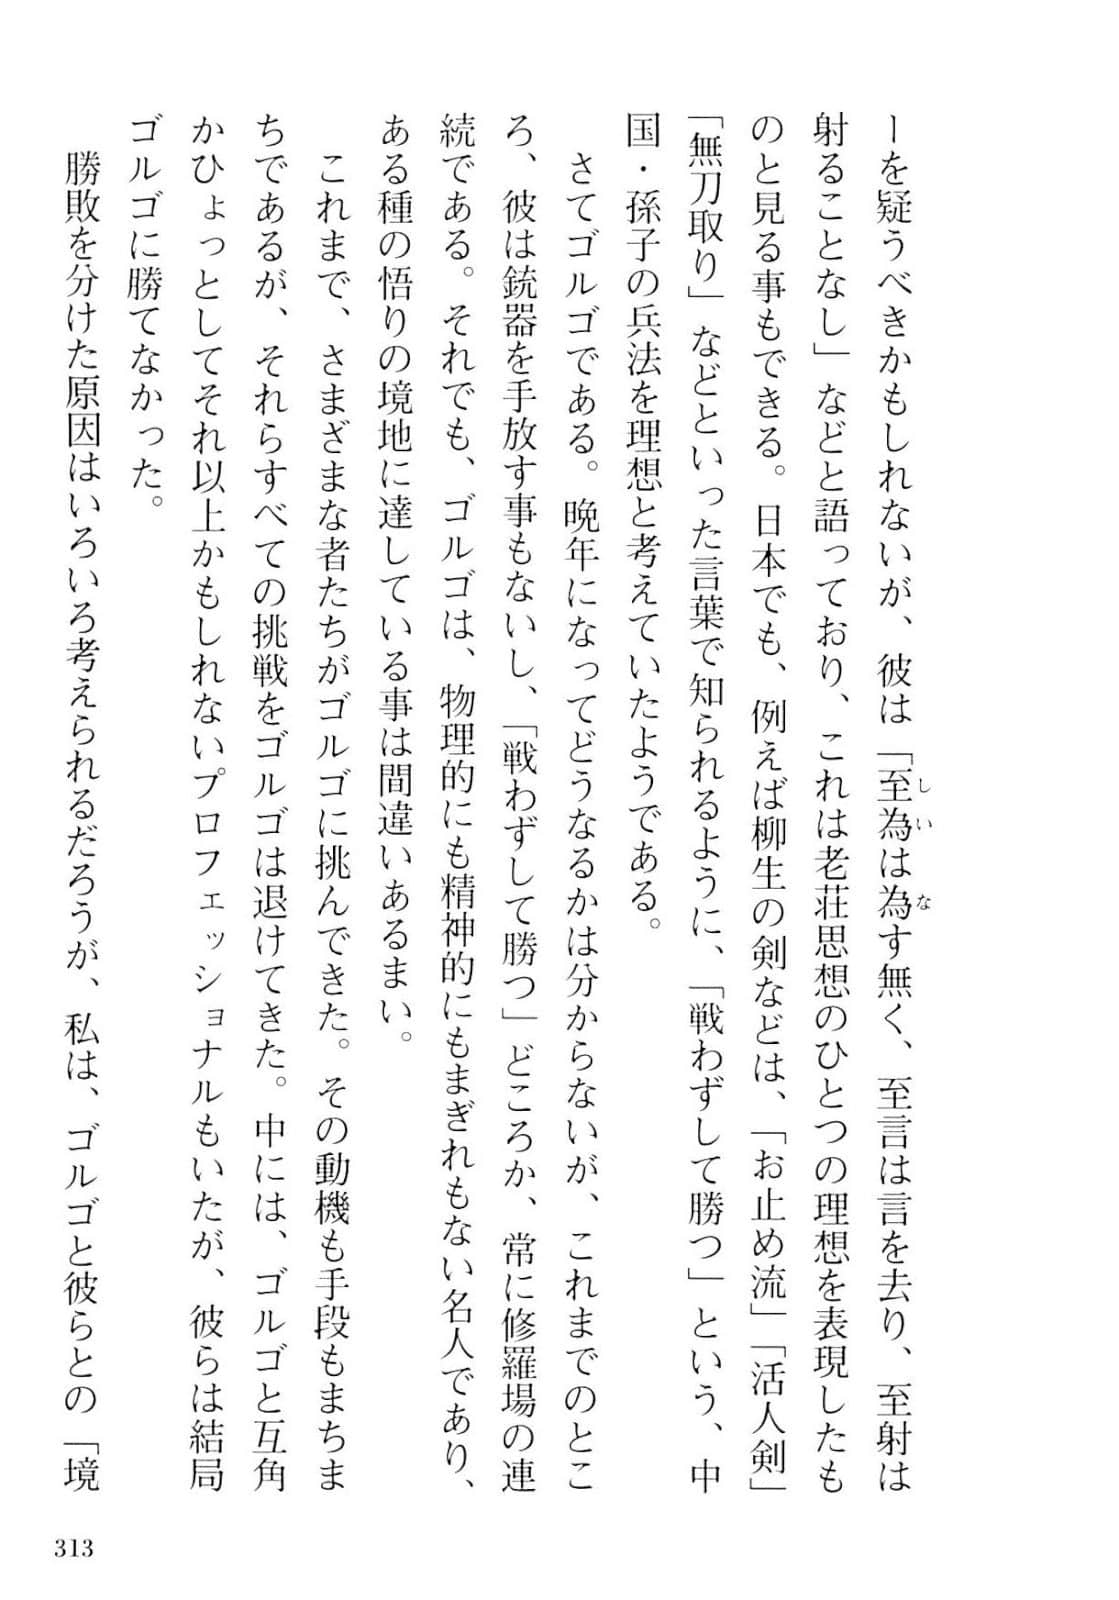 ーを疑うべきかもしれないが、彼は「至為は為す無く、至言は言を去り、至射は
射ることなし」などと語っており、これは老荘思想のひとつの理想を表現したも
のと見る事もできる。日本でも、例えば柳生の剣などは、「お止め流」「活人剣」
「無刀取り」などといった言葉で知られるように、「戦わずして勝つ」という、中
国・孫子の兵法を理想と考えていたようである。
さてゴルゴである。晩年になってどうなるかは分からないが、これまでのとこ
ろ、彼は銃器を手放す事もないし、「戦わずして勝つ」どころか、常に修羅場の連
続である。それでも、ゴルゴは、物理的にも精神的にもまぎれもない名人であり、
ある種の悟りの境地に達している事は間違いあるまい。
これまで、さまざまな者たちがゴルゴに挑んできた。その動機も手段もまちま
ちであるが、それらすべての挑戦をゴルゴは退けてきた。中には、ゴルゴと互角
かひょっとしてそれ以上かもしれないプロフェッショナルもいたが、彼らは結局
ゴルゴに勝てなかった。
勝敗を分けた原因はいろいろ考えられるだろうが、私は、ゴルゴと彼らとの「境
しい
な
313